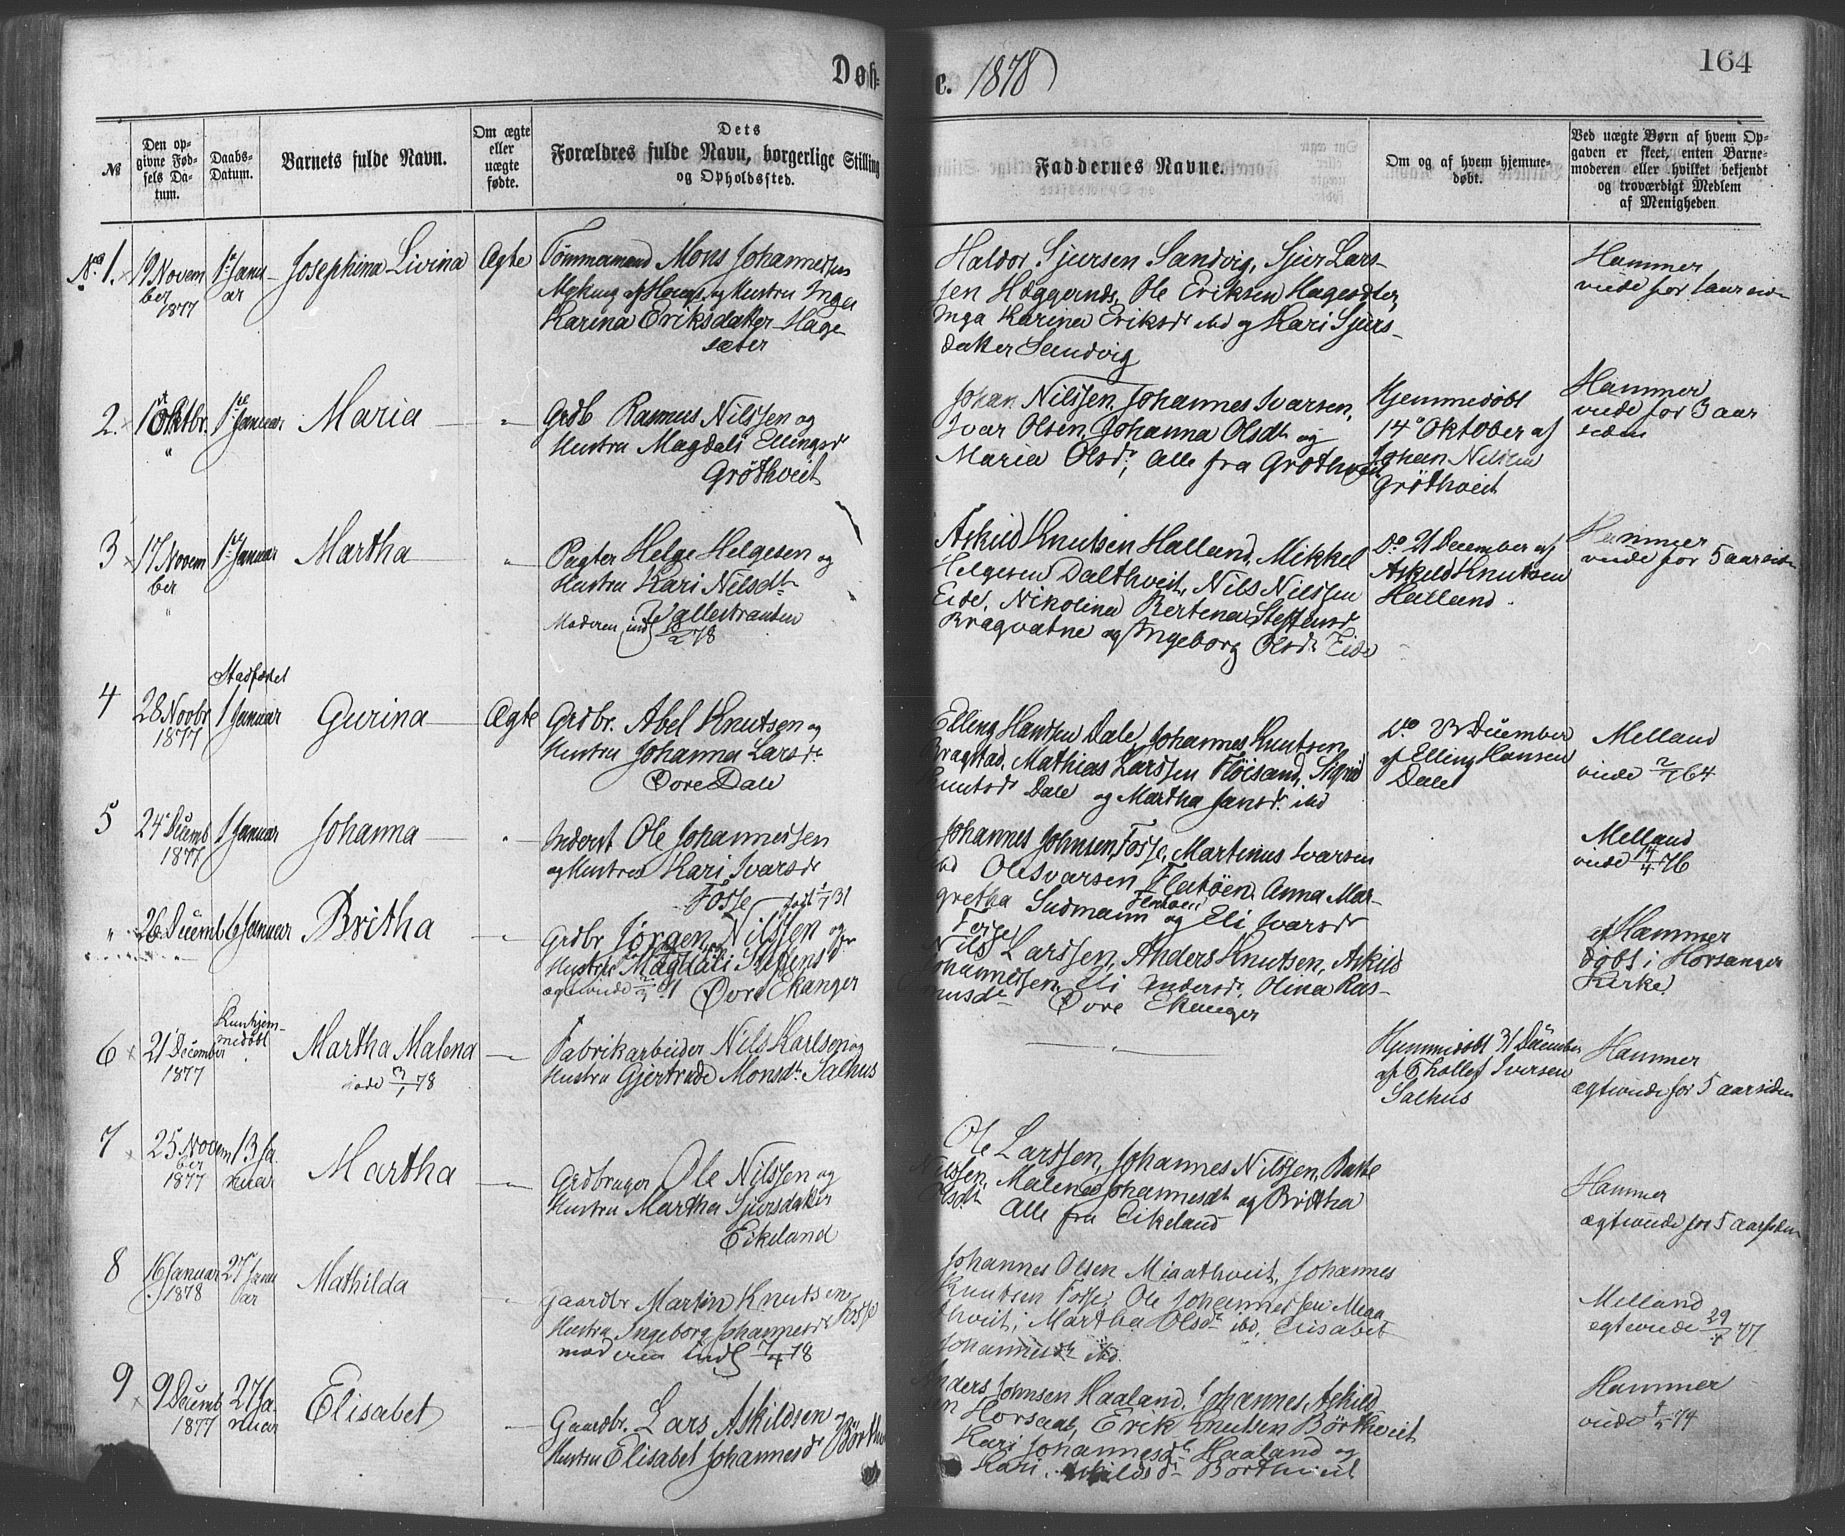 Døb- e. 1878
164
№
Den op-
givne Fød-
sels Da-
tum.
Daabs-
Datum.
Barnets fulde Navn.
Om ægte
eller
uægte
fødte.
Dets
Forældres fulde Navn, borgerlige Stilling
og Opholdssted.
Faddernes Navne.
Om og af hvem hjemme-
døbt.
Ved uægte Børn af hvem Op-
gaven er skeet, enten Barne-
moderen eller hvilket bekjendt
og troværdigt Medlem
af Menigheden
1.
19 Novem
ber
1877
1 Janu
ar
Josephina Livina
Ægte
Tømmermand Mons Johannessen
Myking Hustru Inga
Karina Eriksdatter Hage
sæter
Haldor Sjursen Sandvig, Sjur Lars-
sen Hæggernæs, Ole Eriksen Hagesæter,
Inga Karina Eriksdr ibd og Kari Sjurs-
datter Sandvig
Hammer
viede for 1 aar siden
2.
Oktbr.
"
1 Januar
Maria
"
Grdb Rasmus Nilssen og
Hustru Magdali Ellingsdr
Grøthveit
Johan Nilssen, Johannes Ivarsen,
Ivar Olsen, Johanna Olsdtr og
Maria Olsdr, alle fra Grøthveit
Hjemmedøbt
14 Oktober af
Johan Nilssen
Grøthveit
Hammer
viede for 3 aar
siden
3
17 Novem
ber
"
1 Januar
Martha
"
Pagter Helge Helgesen og
Hustru Kari Nilsdtr
Vallestranden
Moderen indl 78
Askild Knutsen Halland, Mikkel
Helgesen Dalthveit, Nils Nilssen
Eide, Nikolina Bertina Steffensdr
Bragvatne og Ingeborg Olsdr Eide
Do 21 December af
Askild Knutsen
Halland.
Hammer
viede for 5 aar siden
4
28 Novbr
1877
Stadfæstet
1 Januar
Gurina
Ægte
Grdbr. Abel Knutsen og
Hustru Johanna Larsdr
Øvre Dale
Elling Hansen Dale, Johannes Knutsen
Bragstad, Mathias Larssen Fløisand, Sigrid
Knutsdr Dale og Martha Jansdr ibd
Do December
af Elling Hansen
Dale
Melland
viede 64
5
24 Decemb
1877
1 Januar
Johanna
"
Inderst Ole Johannessen
og Hustru Kari Ivarsdr
Fosse
Johannes Johnsen Fosse, Martinus Ivarsen
ibd Ole Ivarsen Flatøen, Anna Mar-
gretha Sudmann Flatøen og Eli Ivarsdr
Fosse
Melland
viede 76
"
26 Decemb
6 Januar
Britha
"
Grdbr Jørgen Nilssen og
Hustru Magdali Steffensdr
Øvre Ekanger
Nils Larssen, Anders Knutsen, Askild
Johannessen, Eli Andersdr, Olina Ras-
musdr Øvre Ekanger
Hammer
døbt i Horsanger
Kirke
6
21 December
1877
Kun hjem-
medøbt
Martha Malena
78
"
Fabrikarbeider Nils Karlsen og
Hustru Gjertrude Monsdr Salhus
"
Hjemmedøbt 31 December
af Thollef Iversen
Salhus
Hammer
ægteviede for 5 aar siden
7
25 Novem
ber
1877
13 Ja-
nuar
Martha
"
Grdbruger Ole Nilssen og
Hustru Martha Sjursdatter
Eikeland
Ole Larssen, Johannes Nilssen,
Nilssen, Malena Johannesdr og Britha
Olsdr alle fra Eikeland
Hammer
ægteviede for 5 aar siden
8
16 Januar
1878
27 Janu
ar
Mathilda
"
Gaardbr Martin Knutsen Fosse
Hustru Ingeborg Johannesdr
moderen indl 78
Johannes Olsen Miaathveit, Johannes
Knutsen Fosse, Ole Johannessen Miaa
thveit, Martha Olsdr ibd, Elisabet
Johannesdr ibd.
Melland
egteviede 77
9
9 Decemb
1877
27 Ja-
nuar
Elisabet
"
Gaardbr. Lars Askildsen og
Hustru Elisabet Johannesdr
Anders Johnsen Haaland, Johannes Askild
sen Horsaas, Erik Knutsen Børthveit
Kari Johannesdr Haaland og
Kari Askildsdr Børthveit
Hammer
viede 74